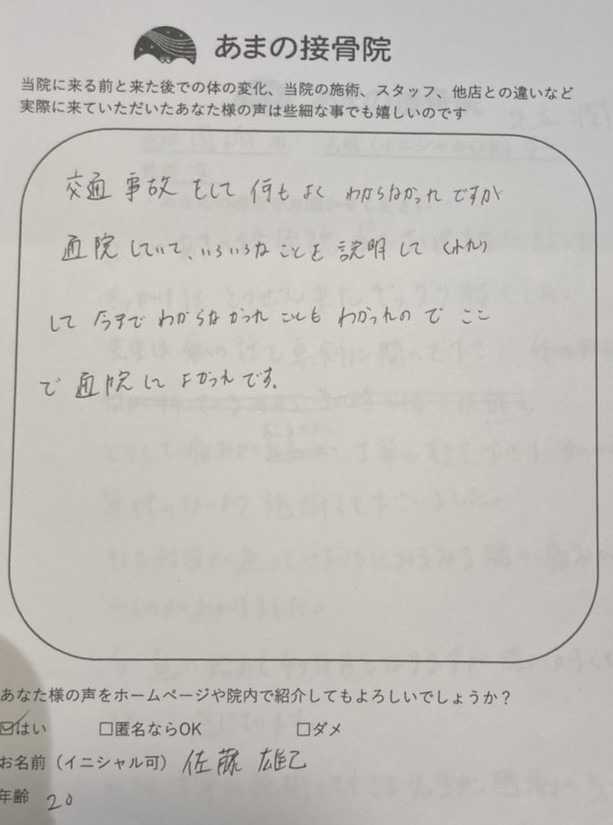 あまの接骨院
当院に来る前と来た後での体の変化、当院の施術、スタッフ、他店との違いなど
実際に来ていただいたあなた様の声は些細な事でも嬉しいのです
交通事故をして何もよくわからなかったですが
通院していて、いろいろなことを説明してくれたり
して今までわからなかったこともわかったのでここ
で通院してよかったです。
あなた様の声をホームページや院内で紹介してもよろしいでしょうか？
☑はい □匿名ならOK □ダメ
お名前（イニシャル可） 佐藤 雄己
年齢 20